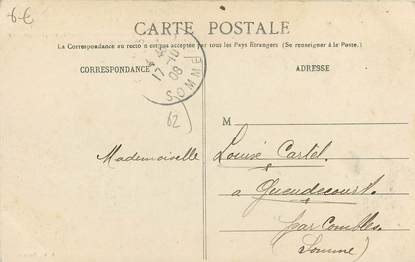 6€
CARTE POSTALE
La Correspondance au recto n'est pas acceptée par tous les Pays Etrangers (Se renseigner à la Poste.)
CORRESPONDANCE
ADRESSE
17-10
08
SOMME
62
M
Mademoiselle Louise Cartel.
a Gueudecourt.
par Combles
(Somme)